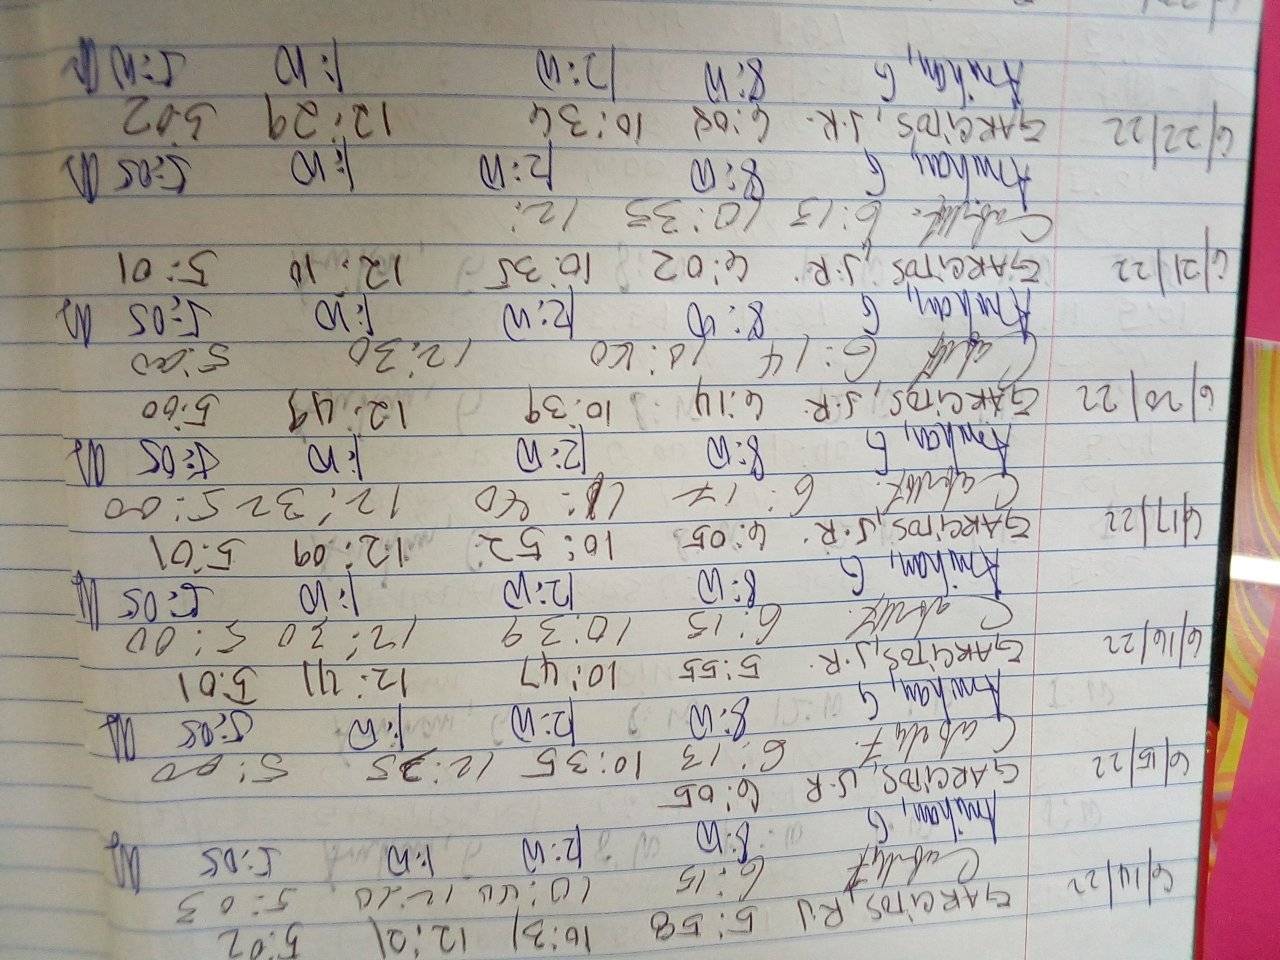 6/14/22 GARCITOS, RJ 5:58 10:31 12:21 5:02
6:15 10:40 12:20 5:03
Anihan, G 8:00 12:00 1:00 5:05
6/15/22 GARCITOS, J.R 6:05
6:13 10:35 12:35 5:00
Anihan, G 8:00 12:00 1:00 5:05
6/16/22 GARCITOS, J.R. 5:55 10:47 12:41 5:01
6:15 10:39 12:30 5:00
Anihan, G 8:00 12:00 1:00 5:05
6/17/22 GARCITOS, J.R. 6:05 10:52 12:09 5:01
6:17 :40 12:32 5:00
Anihan, G 8:00 12:00 1:00 5:05
6/20/22 GARCITOS, J.R. 6:14 10:39 12:49 5:00
6:14 10:40 12:30 5:00
Anihan, G 8:00 12:00 1:00 5:05
6/21/22 GARCITOS, J.R. 6:02 10:35 12:10 5:01
6:13 10:33 12:
Anihan, G 8:00 12:00 1:00 5:05
6/22/22 GARCITOS, J.R. 6:08 10:34 12:29 5:02
Anihan, G 8:00 12:00 1:00 5:00